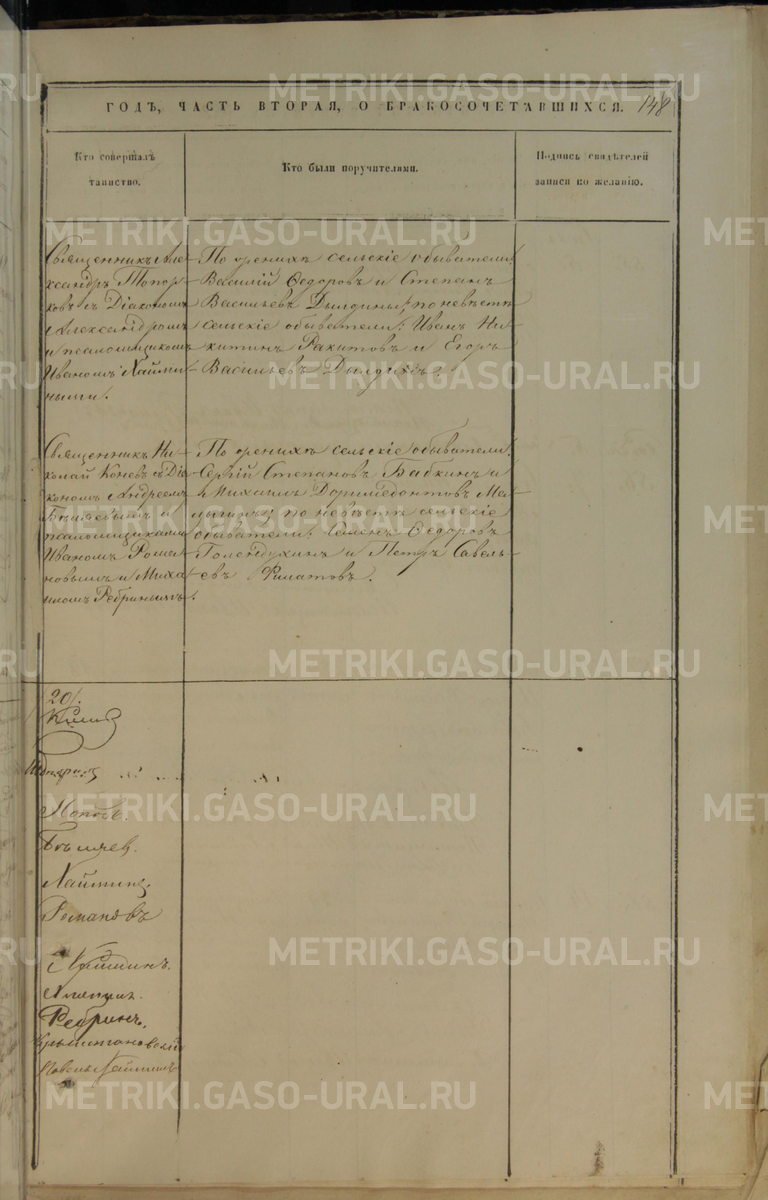 ГОДЪ, ЧАСТЬ ВТОРАЯ, О БРАКОСОЧЕТАВШИХСЯ. 148
Кто совершалъ
таинство.
Кто были поручителями.
Подпись свидѣтелей
записи по желанію.
Священникъ Але-
ксандръ Топор-
ковъ съ Діакономъ
Александромъ
и псаломщикомъ
Иваномъ Найми-
ными.
По женихѣ сельскіе обыватели
Василій Ѳедоровъ и Степанъ
Васильевъ Дылдины; по невѣстѣ
сельскіе обыватели: Иванъ Ни-
китинъ Ракитовъ и Егоръ
Васильевъ Дылдинъ.
Священникъ Ни-
колай Коневъ съ Діа-
кономъ Андреемъ
Бѣляевымъ и
псаломщиками
Иваномъ Рома-
новымъ и Миха-
иломъ Ребринымъ.
По женихѣ сельскіе обыватели:
Сергій Степановъ Бабкинъ и
Михаилъ Доримедонтовъ Ма-
лыгинъ; по невѣстѣ сельскіе
обыватели: Семенъ Ѳедоровъ
Голендухинъ и Петръ Савель-
евъ Филатовъ.
20/.
Поповъ.
Бѣляев.
Наймин.
Романовъ
Ребринъ.
METRIKI.GASO-URAL.RU